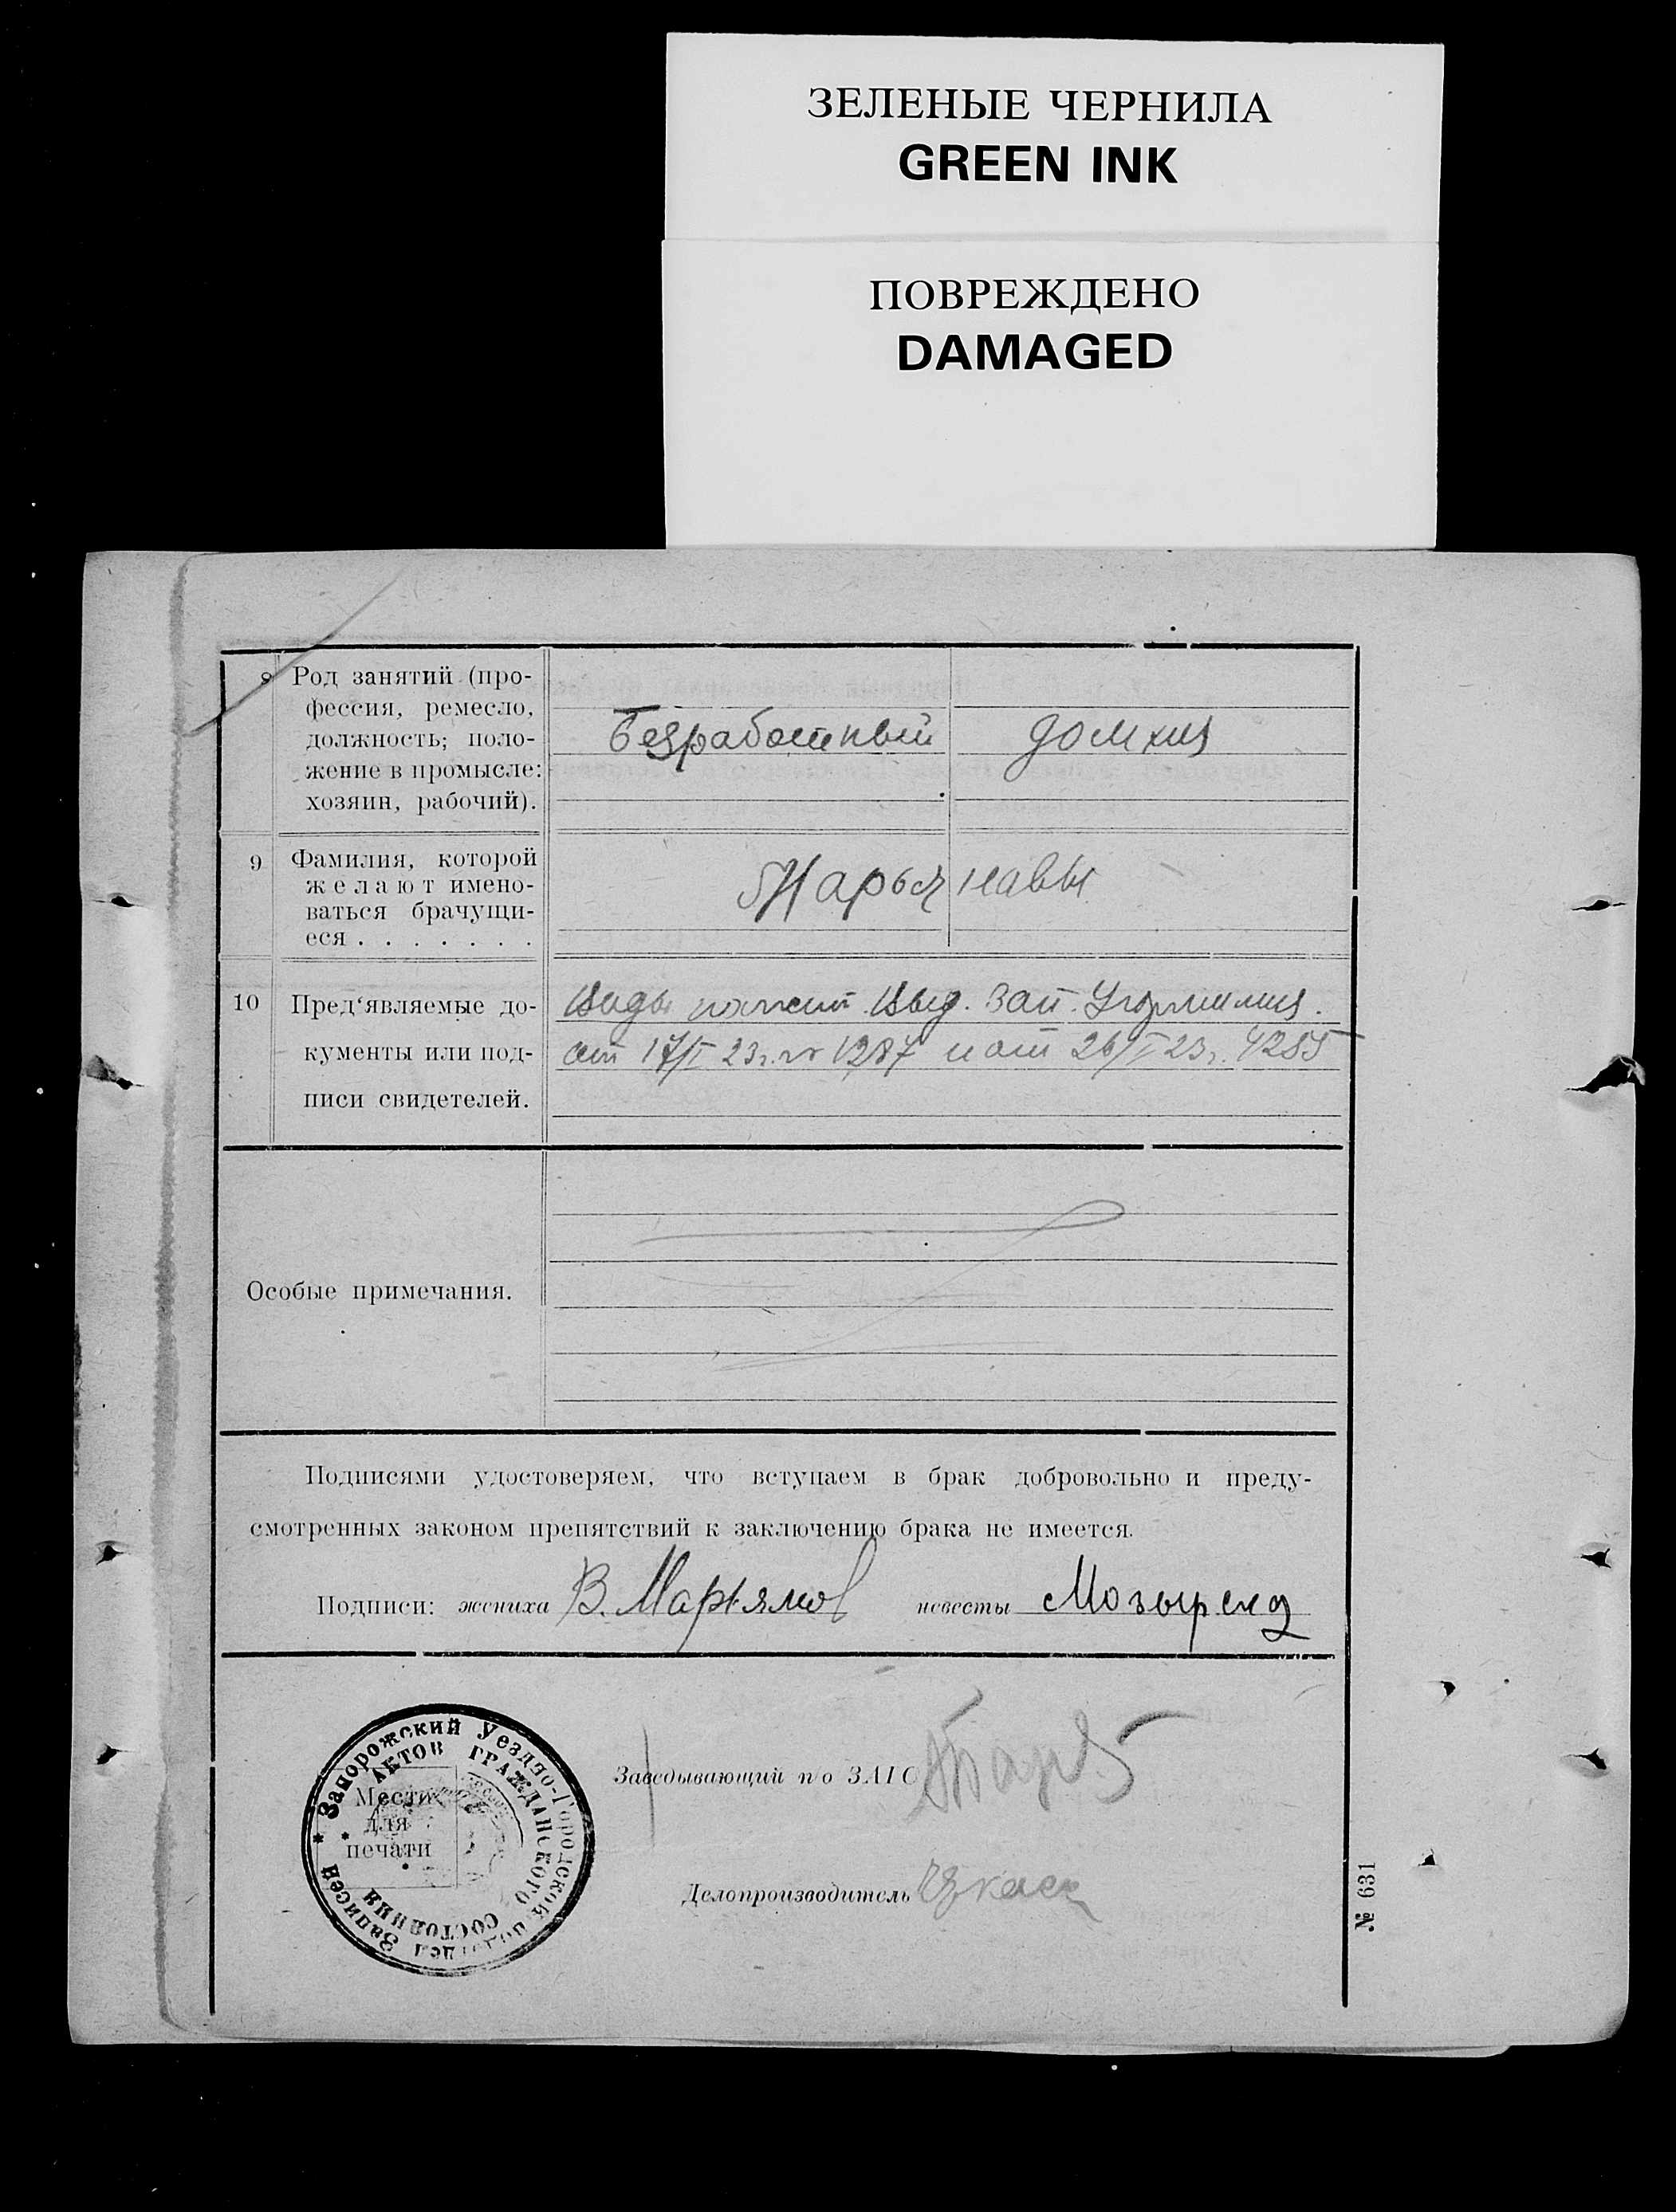 ЗЕЛЕНЫЕ ЧЕРНИЛА
GREEN INK
ПОВРЕЖДЕНО
DAMAGED
8 Род занятий (про-
фессия, ремесло,
должность; поло-
жение в промысле:
хозяин, рабочий).
Безработный
домхоз
9 Фамилия, которой
желают имено-
ваться брачущи-
еся . . . . . . .
10 Пред‘являемые до-
кументы или под-
писи свидетелей.
Виды на жит. Выд. Зап.
от 17/I 23г. № 1287 и от 26/I 23г. 4285
Особые примечания.
Подписями удостоверяем, что вступаем в брак добровольно и преду-
смотренных законом препятствий к заключению брака не имеется.
Подписи: жениха В. Марьямов невесты
Запорожский Уездно-Городской подотдел Записей
АКТОВ ГРАЖДАНСКОГО СОСТОЯНИЯ
Место
для
печати
Заведывающий п/о ЗАГС
Делопроизводитель
№ 631